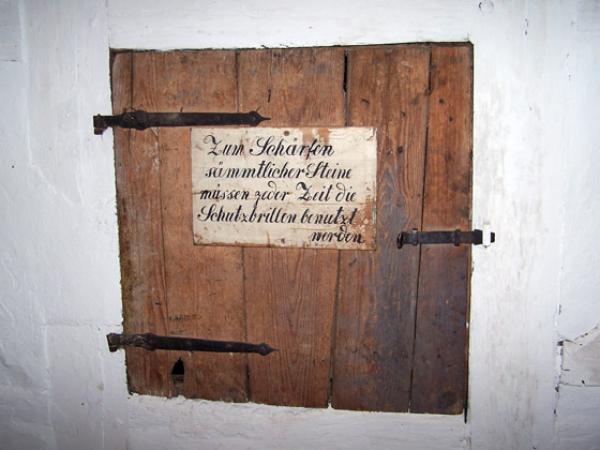 Zum Schärfen
sämmtlicher Steine
müssen zeder Zeit die
Schutzbrillen benutzt
werden